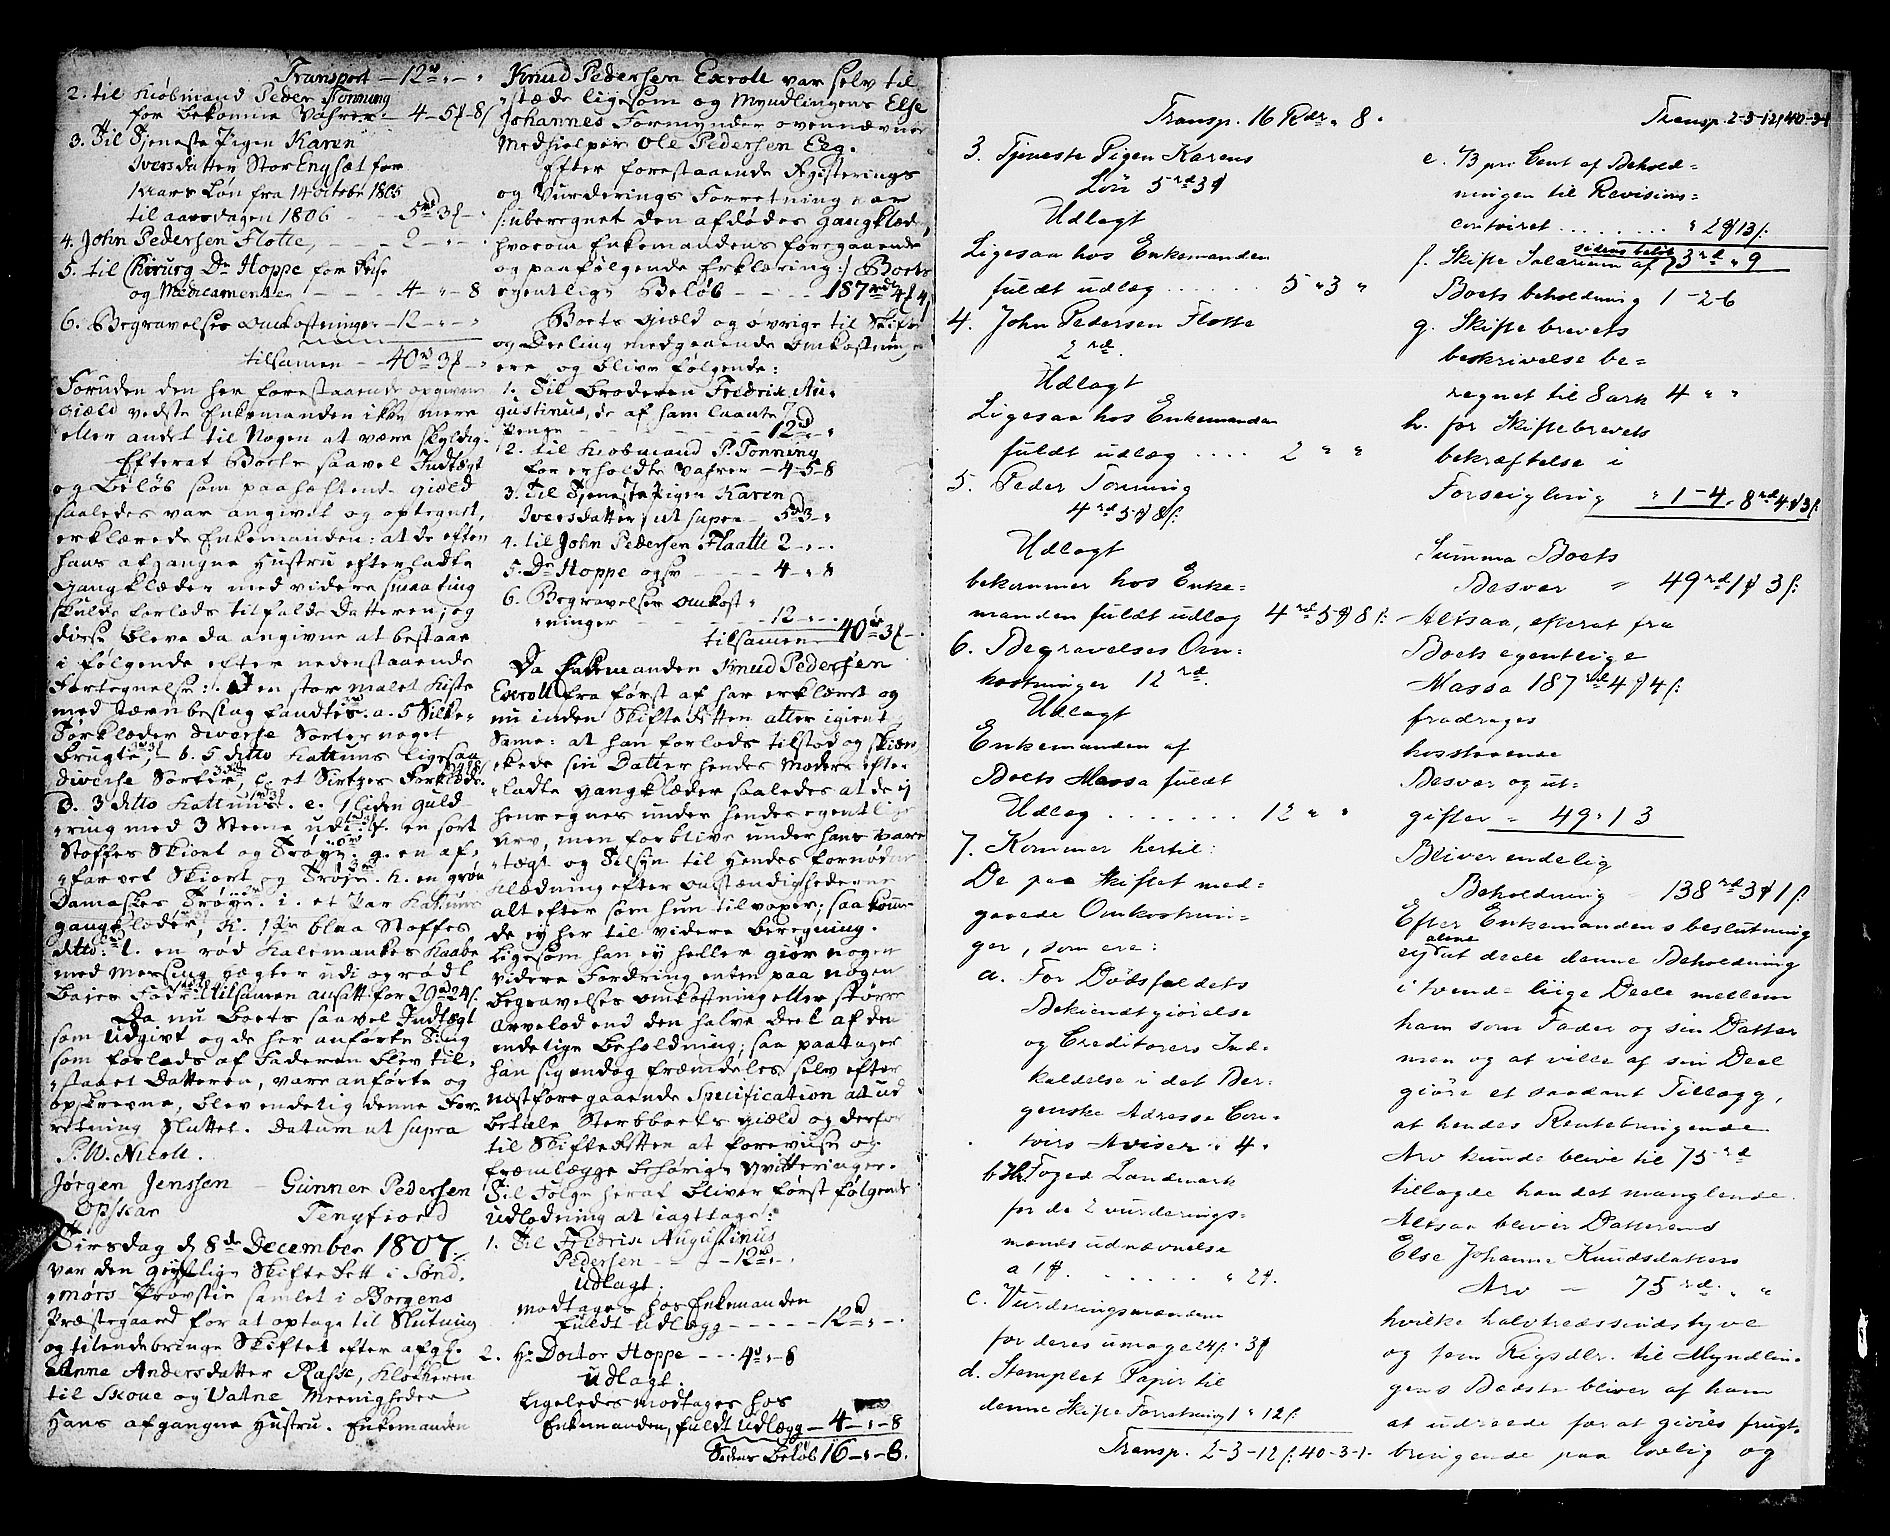 Transport — 12 rd " — "
2. til Kiøbmand Peder Tonning
for bekomne Vahrer — 4 — 5 ₰ 8 ſ
3. Til Tjeneste Pigen Karen
Iversdatter Stor Engsæt for
1 Aars Løn fra 14 October 1805
til aarsdagen 1806 — — 5 rd 3 ₰ — "
4. John Pedersen Flotte, — — 2 — " — "
5. til Chirurg Dr Hoppe for Reise
og Medicamenter — — — 4 — " — 8
6. Begravelses Omkostninger — 12 — " — "
tilsamen — 40 rd 3 ₰ — "
Foruden den her forestaaende opgivne
Giæld vedste Enkemanden ikke mere
eller andet til Nogen at være skyldig.
Efterat Boets saavel Indtægt
og Beløb som paahæftende giæld
saaledes var angivet og optegnet,
erklærede Enkemanden: at de efter
hans afgangne Hustru efterladte
Gangklæder med videre smaating
skulde forlods tilfalde Datteren; og
disse bleve da angivne at bestaae
i følgende efter nedenstaaende
Fortegnelse: En stor malet Kiste
med Jærnbeslag fandtes. a. 5 Silke-
Tørklæder diverse Sorter noget
brugte, — b. 5 ditto Kattuns ligesaa
diverse Sorter, c. et Sirtzes Forklæde.
d. 3 ditto Kattuns. e. 1 liden Guld
ring med 3 Steene udi. f. en sort
Stoffes Skiørt og Trøye. g. en af-
farvet Skiørt og Trøje. h. en grøn
Damaskes Trøye. i. et Par Kattuns
gangklæder, K. 1 Par blaa Stoffes
ditto. l. en rød Kalemankes Kaabe
med Messing Hægter udi og rødt
Baies Foer. Tilsamen ansatt for 29 rd 24 ſ.
Da nu Boets saavel Indtægt
som Udgivt og de her anførte Ting
som forlods af Faderen blev til-
staaet Datteren, vare anførte og
opskrevne, blev endelig denne For-
retning sluttet. Datum ut supra
P. W. Nicoll.
Jørgen Jenssen — Gunner Pedersen
Opskar Tengfiord
Tirsdag d 8de December 1807.
var den Geistlige Skifte Rett i Sønd-
mørs Provstie samlet i Borgens
Præstegaard for at optage til Slutning
og tilendebringe Skiftet efter afg.
Anne Andersdatter Rasse, Klokkeren
til Skoue og Vatne Meenigheder
Hans afgangne Hustru. Enkemanden
Knud Pedersen Exroll var selv til
stæde ligesom og Myndlingens Else
Johannes Formynder ovennævnte
Medhielper Ole Pedersen Eeg.
Efter forestaaende Registerings
og Vurderings Forretning var
/: uberegnet den afdødes Gangklæder,
hvorom Enkemandens foregaaende
og paafølgende Erklæring :/ Boets
egentlige Beløb — — — 187 rd 4 ₰ 4
Boets Giæld og øvrige til Skifte
og Deeling medgaaende Omkostninger
ere og blive følgende:
1. Til Broderen Fredrik Au-
gustinus, de af ham laante
Penge — — — — — 12 rd " "
2. til Kiøbmand P. Tonning
for erholdte Vahrer — 4 — 5 — 8
3. Til Tjeneste Pigen Karen
Iversdatter ut supra — 5 rd 3 — "
4. til John Pedersen Flaatte 2 — " — "
5. Dr Hoppe — — — 4 — " 8
6. Begravelses Omkost-
ninger — — — — 12 — " — "
tilsamen — 40 rd 3 ₰ — "
Da Enkemanden Knud Pedersen
Exroll fra først af har erklæret og
nu inden Skifte Retten atter igient
Same: at han forlods tilstod og skiæn-
kede sin Datter hendes Moders efter-
ladte Gangklæder saaledes at de ej
henregnes under hendes egentlige
Arv, men forblive under hans Vare-
tægt og Tilsyn til hendes fornødne
Klædning efter Omstændighederne
alt efter som hun tilvoxer; saa kom-
de ey her til videre Beregning.
Ligesom han ey heller giør nogen
videre Fordring enten paa nogen
Begravelses Omkostning eller større
Arvelod end den halve Deel af den
endelige Beholdning; saa paatager
han sig endog fremdeles selv efter
næstforegaaende Specification at ud
betale Sterbboets Giæld og derfor
til Skifte Retten at forevise og
fremlægge behørige Qvitteringer.
Til Følge heraf bliver først følgende
Udlodning at iagttage:
1. Til Fredrik Augustinus
Pedersen — — — 12 rd " — "
Udlagt.
modtages hos Enkemanden
fuldt Udlegg — — — — — 12 rd " — "
2. Hr Doctor Hoppe — — 4 rd " — 8
Udlagt.
Ligeledes modtages hos
Enkemanden, fuldt Udlegg — 4 — " — 8
Sidens Beløb 16 — " — 8.
Transp. 16 Rdr " 8 "
3. Tjeneste Pigen Karens
Lön 5 rd 3 ₰
Udlagt
Ligesaa hos Enkemanden
fuldt udlæg . . . . . . 5 " 3 "
4. John Pedersen Flotte
2 rd.
Udlagt
Ligesaa hos Enkemanden
fuldt udlæg . . . . 2 " "
5. Peder Tonning
4 rd 5 ₰ 8 ſ:
Udlagt
bekommer hos Enke-
manden fuldt udlæg 4 rd 5 ₰ 8 ſ:
6. Begravelses Om-
kostninger 12 rd.
Udlagt
Enkemanden af
Boets Massa fuldt
Udlæg . . . . . . . 12 " "
7. Kommer hertil:
De paa Skiftet med-
gaaede Omkostnin-
ger, som ere:
a. For Dödsfaldets
Bekiendtgiörelse
og Creditorers Ind-
kaldelse i det Ber-
genske Adresse Con-
toirs Aviser " 4 "
b. Hr. Foged Landmark
for de 2 vurderings-
mænds udnævnelse
a 1 ₰. . . . . . . " 2 ₰.
c. Vurdringsmændene
for deres umage 24 ſ. " 3 ₰
d. Stemplet Papir til
denne Skifte Forretning 1 " 12 ſ:
Transp. 2-3-12 ſ: 40-3-1-
Transp. 2-3-12, 40-3-1
e. ⅓ pro Cent af Behold-
ningen til Revisions-
contoiret . . . . . . . . " 2 ₰ 13 ſ:
sidens beløb
f. Skifte Salarium af 73 rd " 9
Boets beholdning 1-2-6
g. Skifte brevets
beskrivelse be-
regnet til 8 ark 4 " "
h. for Skiftebrevets
bekræftelse i
Forseigling " 1-4. 8 rd 4 ₰ 3 ſ:
Summa Boets
Besvær = 49 rd 1 ₰ 3 ſ:
Altsaa, efterat fra
Boets egentlige
Massa 187 rd 4 ₰ 4 ſ:
fradrages
hosstaaende
Besvær og ud-
gifter = 49 " 1 3
Bliver endelig
Beholdning = 138 rd 3 ₰ 1 ſ:
Efter Enkemandens beslutning
alene
ey at deele denne Beholdning
i tvende liige Deele mellem
ham som Fader og sin Datter
men og at ville af sin Deel
giöre et saadant Tillægg,
at hendes Rentebringende
Arv kunde blive til 75 rd
tillagde han det manglende.
Altsaa bliver Datterens
Else Johanne Knudsdatters
Arv — 75 rd. " "
hvilke halvtredssindstyve
og fem Rigsdlr. til Myndlin-
gens Bedste bliver af ham
at udreede for at giöres frugt-
bringende paa lovlig og